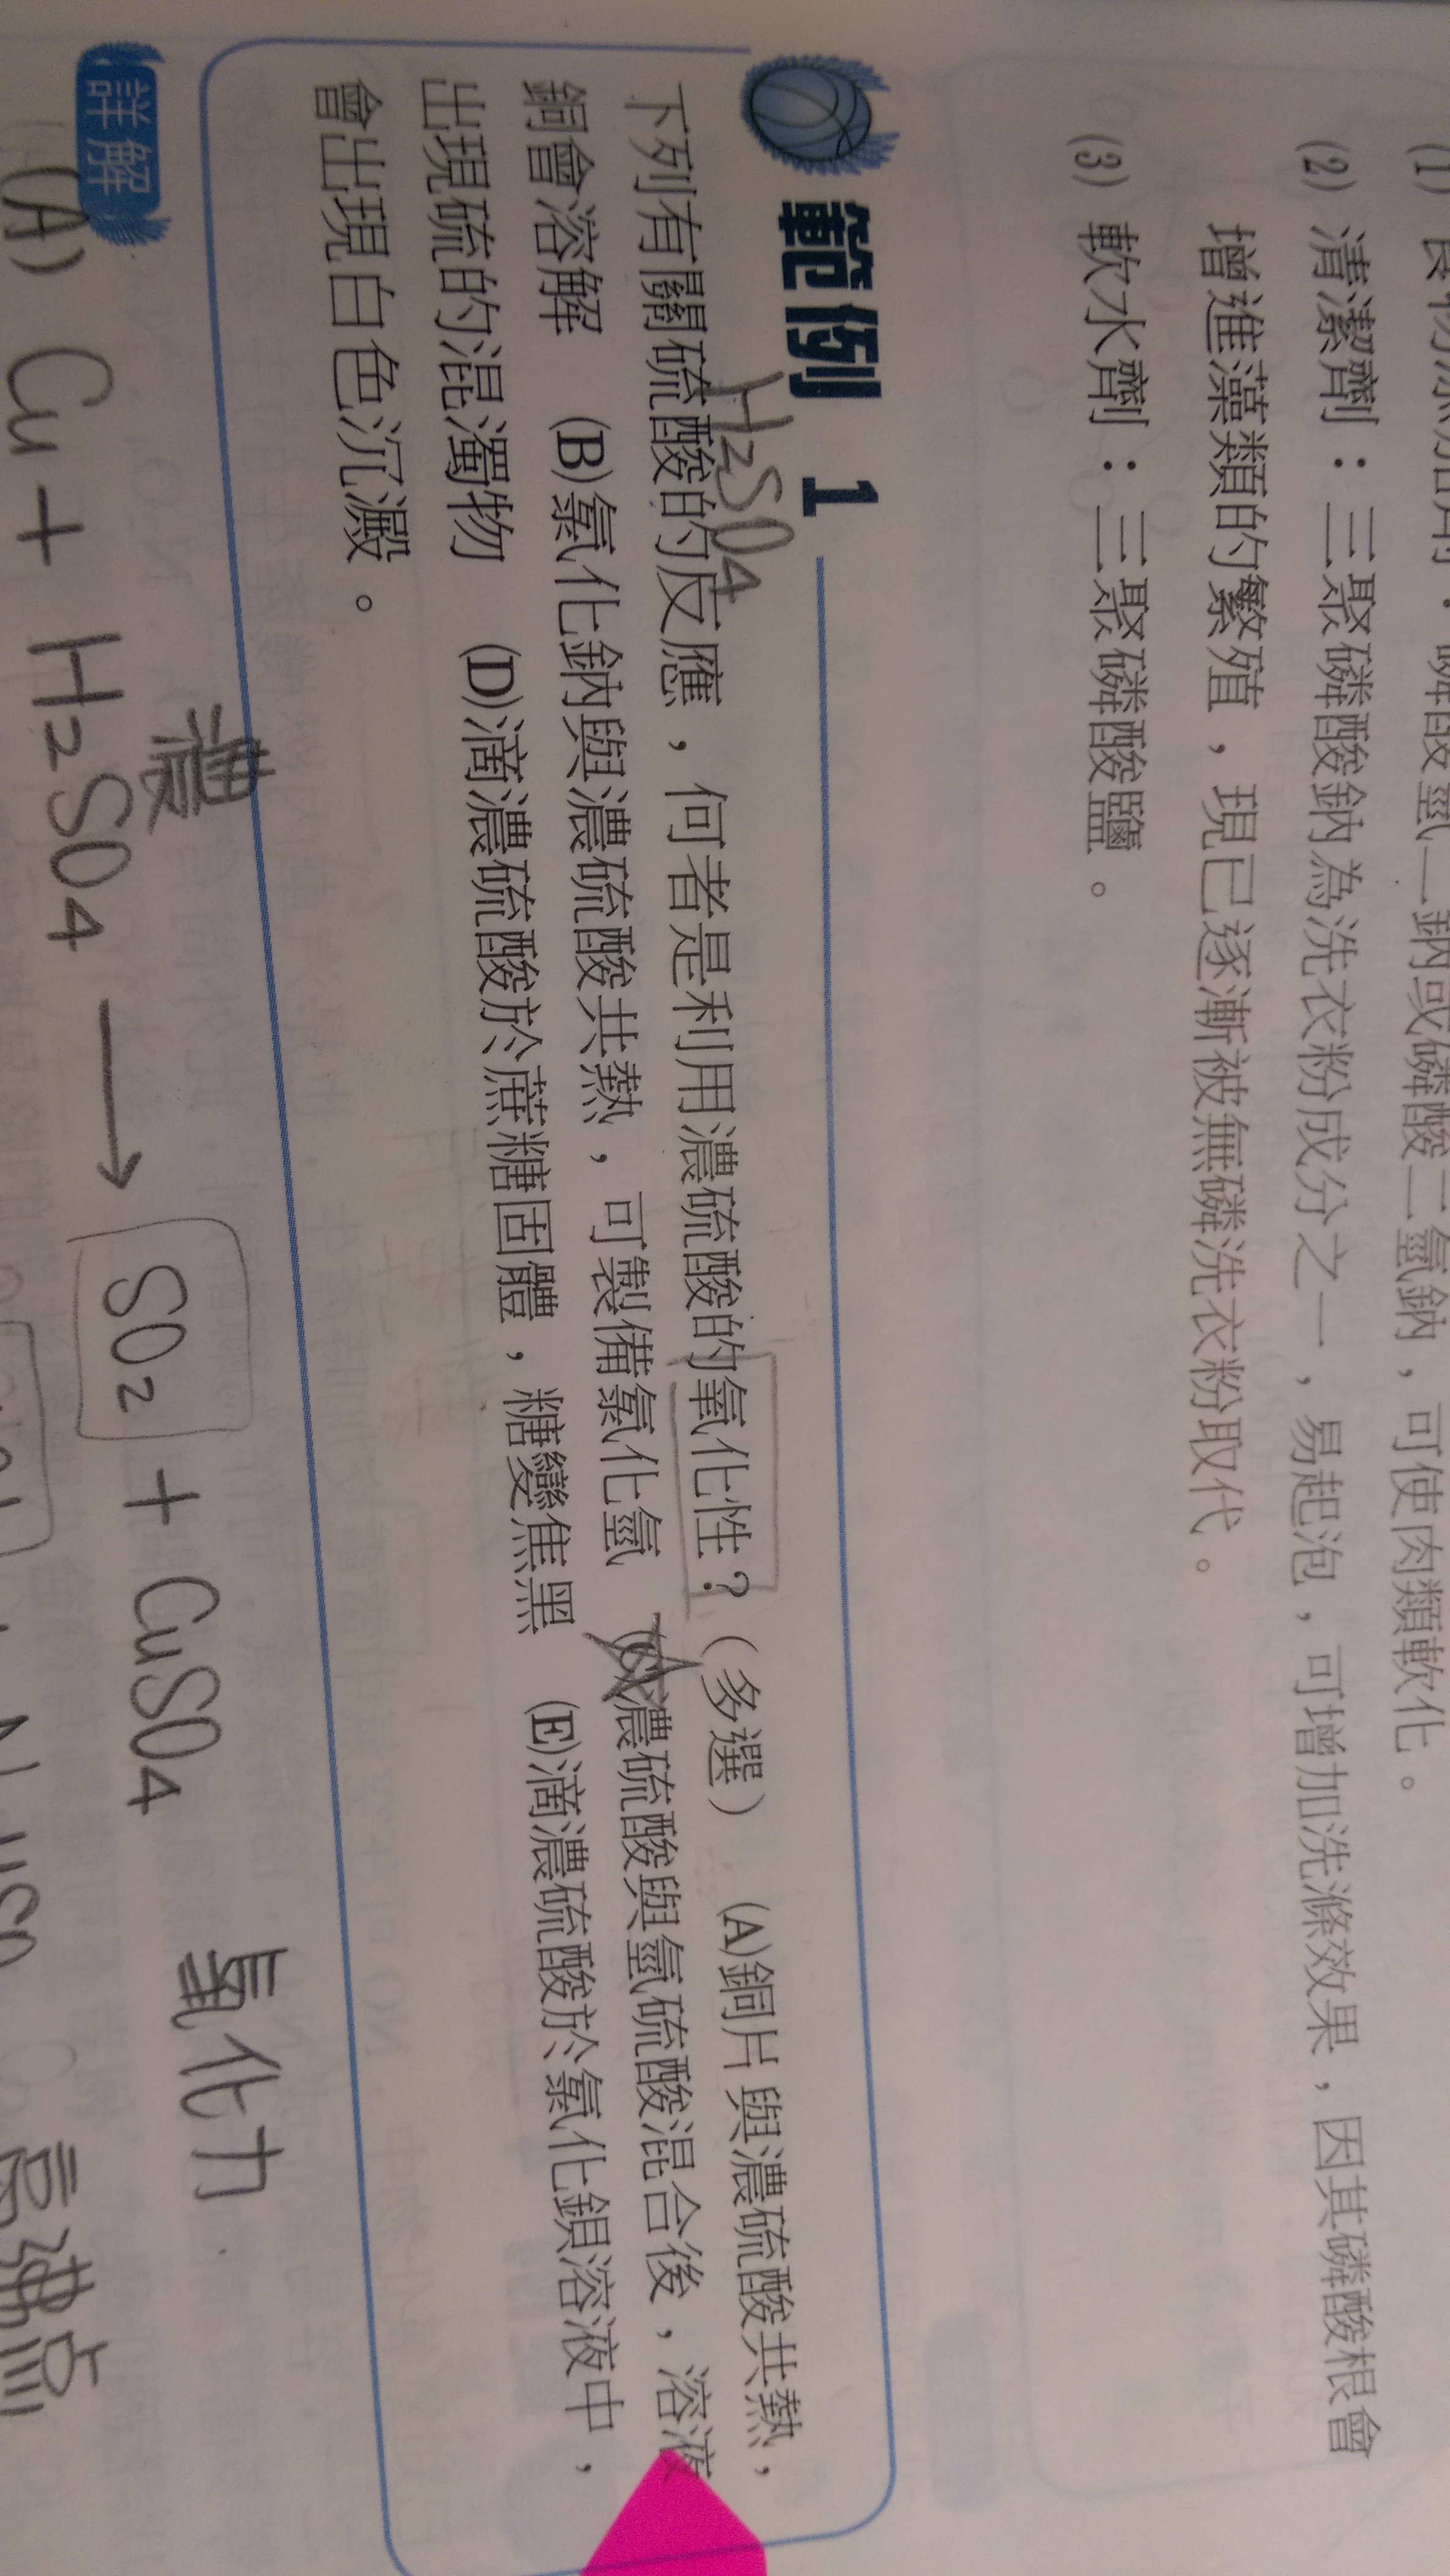 (2) 清潔劑：三聚磷酸鈉為洗衣粉成分之一，易起泡，可增加洗滌效果，因其磷酸根會
增進藻類的繁殖，現已逐漸被無磷洗衣粉取代。
(3) 軟水劑：三聚磷酸鹽。
範例 1
H₂SO₄
下列有關硫酸的反應，何者是利用濃硫酸的氧化性？(多選) (A)銅片與濃硫酸共熱，
銅會溶解 (B)氯化鈉與濃硫酸共熱，可製備氯化氫 (C)濃硫酸與氫硫酸混合後，溶液
出現硫的混濁物 (D)滴濃硫酸於蔗糖固體，糖變焦黑 (E)滴濃硫酸於氯化鋇溶液中，
會出現白色沉澱。
詳解
濃
(A) Cu + H₂SO₄ → SO₂ + CuSO₄ 氧化力
高沸点